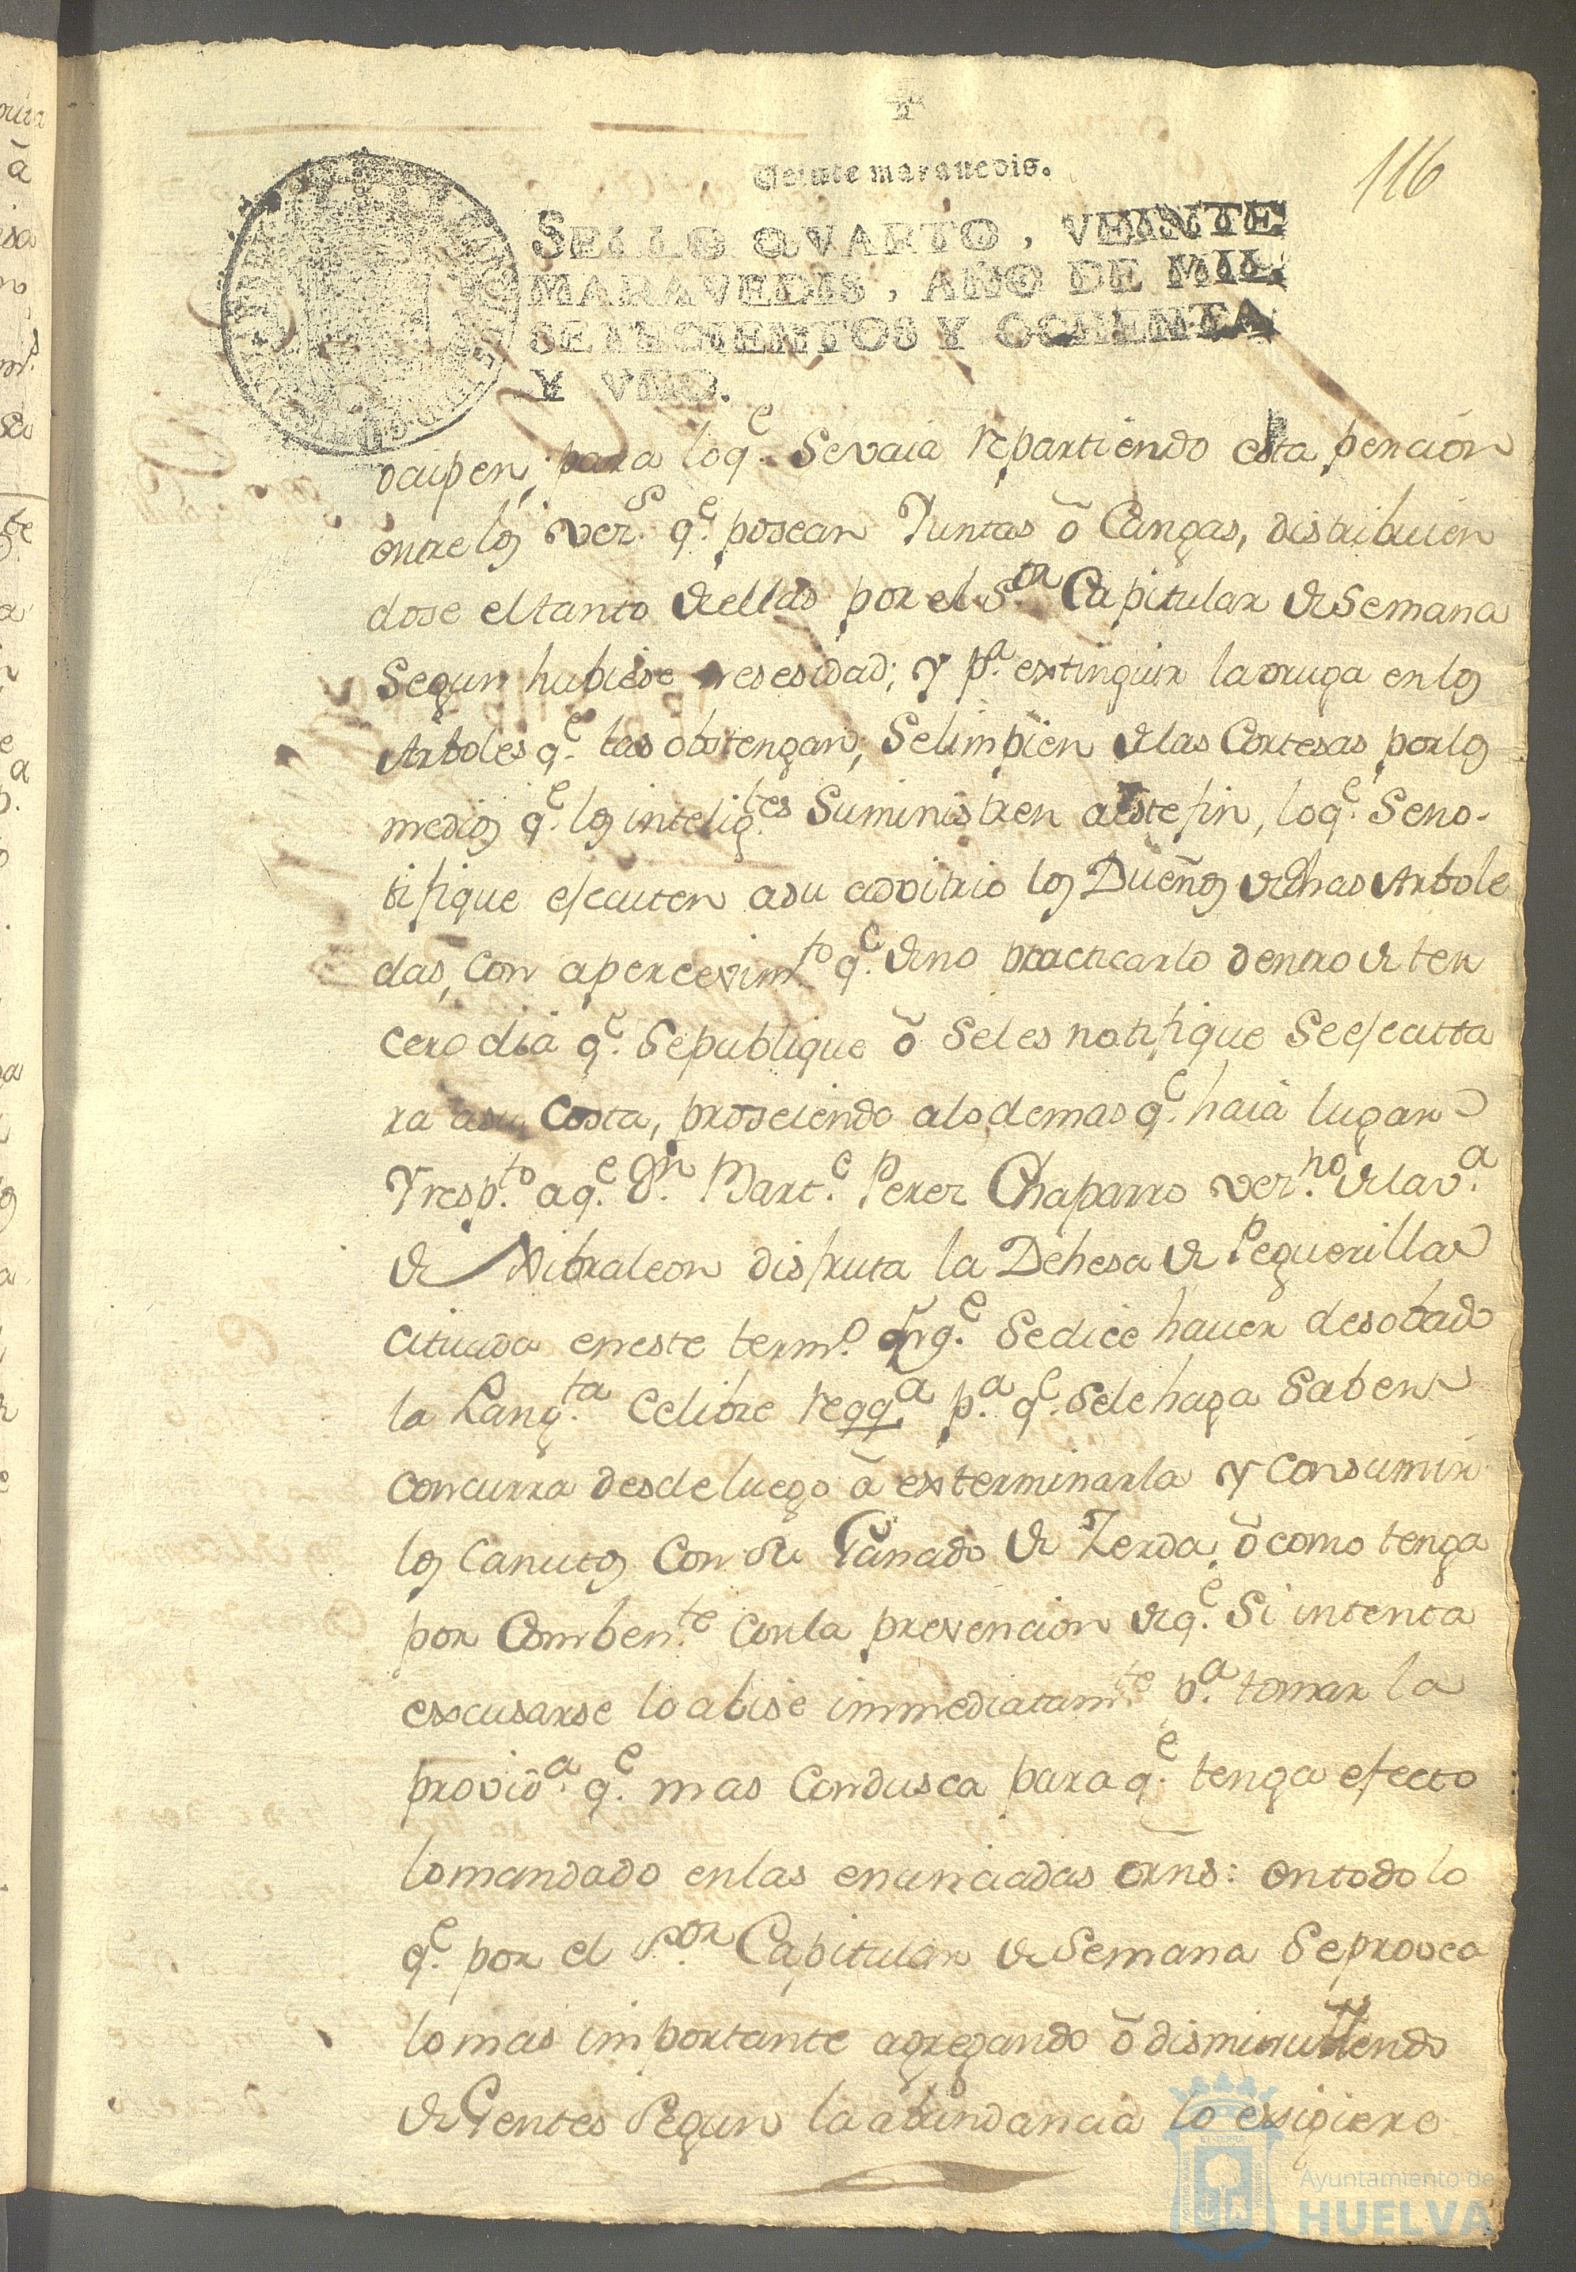 116
Veinte maravedis.
SELLO QVARTO, VEINTE
MARAVEDIS, AÑO DE MIL
SETECIENTOS Y OCHENTA
Y VNO.
ocupen, para loq.e Sevaia repartiendo esta pencion
entre los vez.s q.e posean Yuntas ô Cangas, distribuien
dose eltanto de ellas por el S.or Capitular de Semana
Segun hubiese nesesidad; y p.a extinguir la oruga en los
Arboles q.e las obstengan, Selimpien de las Cortesas por los
medios q.e los intelig.tes Suministren a este fin, loq.e Seno-
tifique ejecuten a su advitrio los Dueños de dhas Arbole
das, con apercevim.to q.e de no practicarlo dentro de ter
cero dia q.e Sepublique ô Seles notifique Se ejecutta
ra asu costa, prosediendo alo demas q.e haia lugar
Y resp.to aq.e Dn Bart.e Perez Chaparro vez.no de la v.a
de Xibraleon disfruta la Dehesa de Peguerillas
cituada en este term.o en q.e Sedice haver desobado
la Lang.ta Se libre reqq.a p.a q.e Sele haga Saber
concurra desde luego â exterminarla y consumir
los canutos con su Ganado de Zerda, ô como tenga
por comben.te con la prevencion de q.e Si intenta
excusarse lo abise immediatam.te p.a tomar la
provid.a q.e mas condusca para q.e tenga efecto
lo mandado en las enunciadas orns: en todo lo
q.e por el S.or Capitular de Semana Se provea
lo mas importante agregando ô disminuyendo
de Gentes Segun la abundancia lo exigiere
Ayuntamiento de
HUELVA